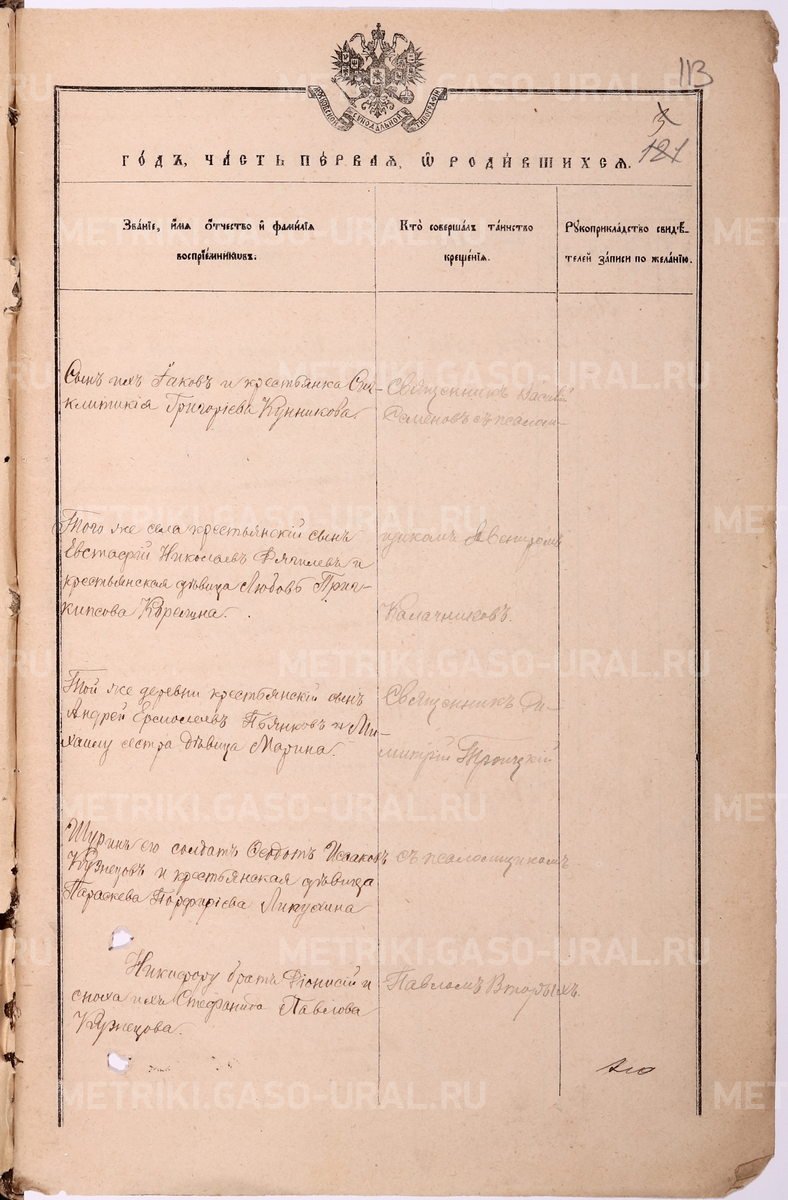 113
МОСКОВСКОЙ СѴНОДАЛЬНОЙ ТИПОГРАФІИ
3
121
ГОДЪ, ЧАСТЬ ПЕРВАЯ, Ѡ РОДИВШИХСЯ.
Званіе, имя отчество и фамилія
воспріемниковъ.
Кто совершалъ таинство
крещенія.
Рукоприкладство свидѣ-
телей записи по желанію.
Сынъ ихъ Іаковъ и крестьянка Син-
клитикія Григоріева Кунникова.
Священникъ Василій
Семеновъ съ псаломщ-
Того же села крестьянскій сынъ
Евстафій Николаевъ и
крестьянская дѣвица Любовь
Карелина.
щикомъ
Калачниковъ.
Той же деревни крестьянскій сынъ
Андрей Ермолаевъ Пьянковъ и Ми-
хаилу сестра дѣвица Марина.
Священникъ Ди-
митрій Троицкій
Шуринъ его солдатъ Ѳедотъ Исааковъ
Кузнецовъ и крестьянская дѣвица
Параскева Порфиріева
съ псаломщикомъ
Никифору братъ Діонисій и
сноха ихъ Стефанида Павлова
Кузнецова.
Павломъ Вторыхъ.
METRIKI.GASO-URAL.RU